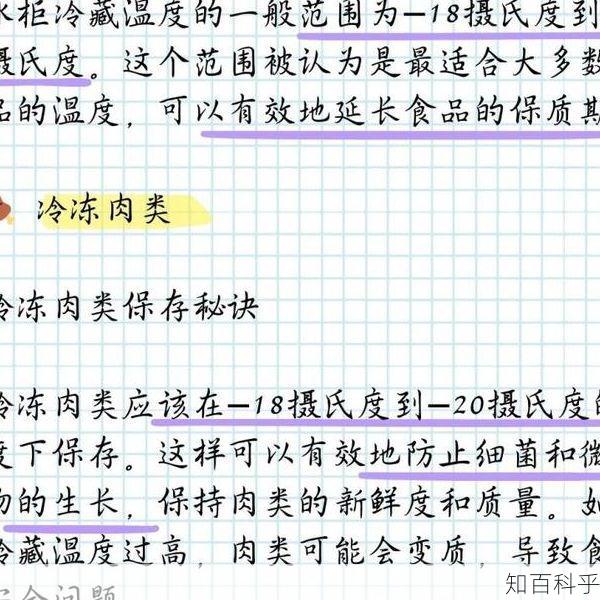 冰柜冷藏温度的一般范围为-18摄氏度到
摄氏度。这个范围被认为是最适合大多数
品的温度，可以有效地延长食品的保质期
冷冻肉类
冷冻肉类保存秘诀
冷冻肉类应该在-18摄氏度到-20摄氏度的
度下保存。这样可以有效地防止细菌和微
物的生长，保持肉类的新鲜度和质量。如
冷藏温度过高，肉类可能会变质，导致食
安全问题
知百科乎